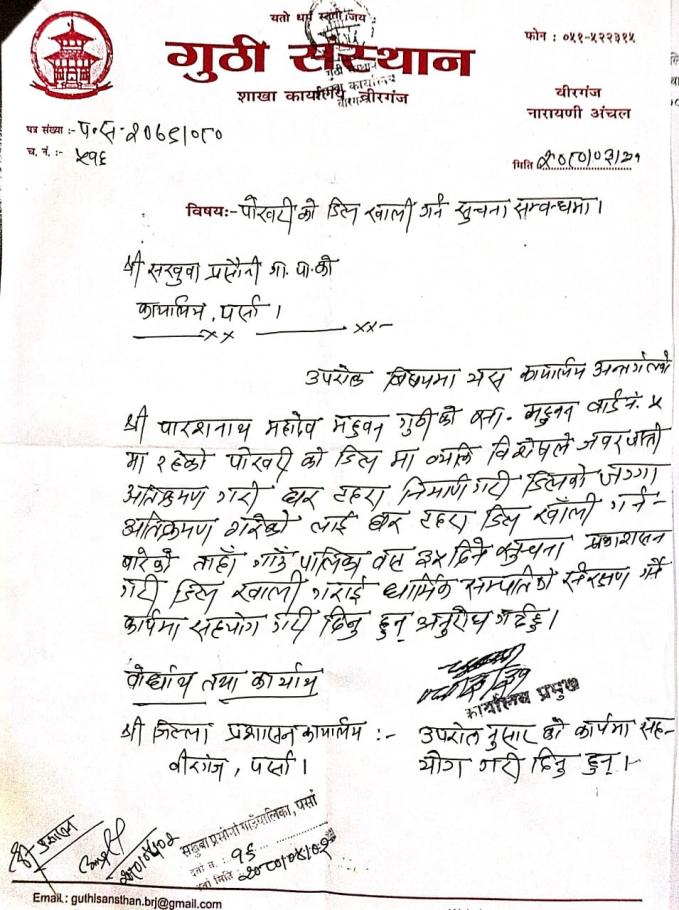 यतो धर्म स्ततो जय:
गुठी संस्थान
शाखा कार्यालय, वीरगंज
फोन : ०५१-५२२३१५
वीरगंज
नारायणी अंचल
पत्र संख्या :- प.स. २०७९/०८०
च. नं. :- ५१६
मिति २०८०/०३/२१
विषय:- पोखरी को डिल खाली गर्ने सुचना सम्बन्धमा।
श्री सखुवा प्रसौनी गा. पा. को
कार्यालय, पर्सा।
उपरोक्त बिषयमा यस कार्यालय अन्तर्गतको
श्री पारशनाथ महादेव महुवन गुठी को बसा. महुवन वार्ड नं. ५
मा रहेको पोखरी को डिल मा व्यक्ति विशेषले जवरजस्ती
अतिक्रमण गरी घर टहरा निर्माण गरी डिलको जग्गा
अतिक्रमण गरेको लाई घर टहरा डिल खाँली गर्न
बारेको ताहाँ गाउँ पालिका बाट ३५ दिने सुचना प्रकाशसन
गरी डिल खाली गराई धार्मिक सम्पतिको संरक्षण गर्ने
कार्यमा सहयोग गरी दिनु हुन् अनुरोध गर्दछु।
कार्यालय प्रमुख
वोर्धाथ तथा कार्यार्थ
श्री जिल्ला प्रशासन कार्यालय :- उपरोक्तनुसार को कार्यमा सह-
वीरगंज, पर्सा। योग गरी दिनु हुन्।
सखुवा प्रसौनी गाउँपालिका, पर्सा
दर्ता नं. १६
दर्ता मिति २०८०/०४/०२
श्री प्रशासन
२०८०/०४/०२
Email : guthisansthan.brj@gmail.com